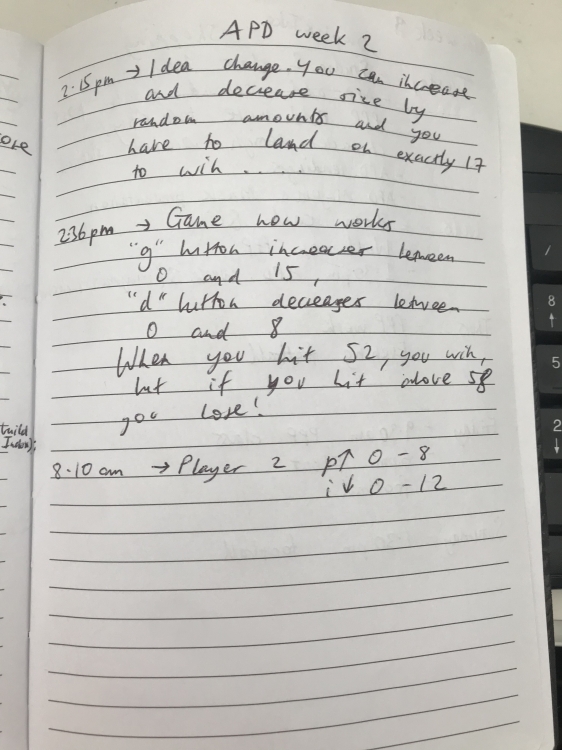 APD week 2
2.15pm → Idea change. You can increase
and decrease size by
random amounts and you
have to land on exactly 17
to win .....
2:36pm → Game now works
"g" button increases between
0 and 15,
"d" button decreases between
0 and 8
When you hit 52, you win,
but if you hit above 58
you lose!
8.10am → Player 2 p↑ 0 - 8
i↓ 0 - 12
/
8
↑
5
2
↓